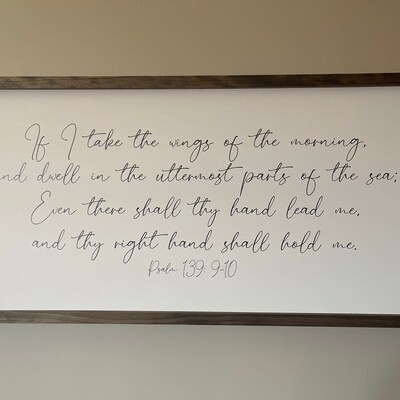 If I take the wings of the morning,
and dwell in the uttermost parts of the sea;
Even there shall thy hand lead me,
and thy right hand shall hold me.
Psalm 139: 9-10